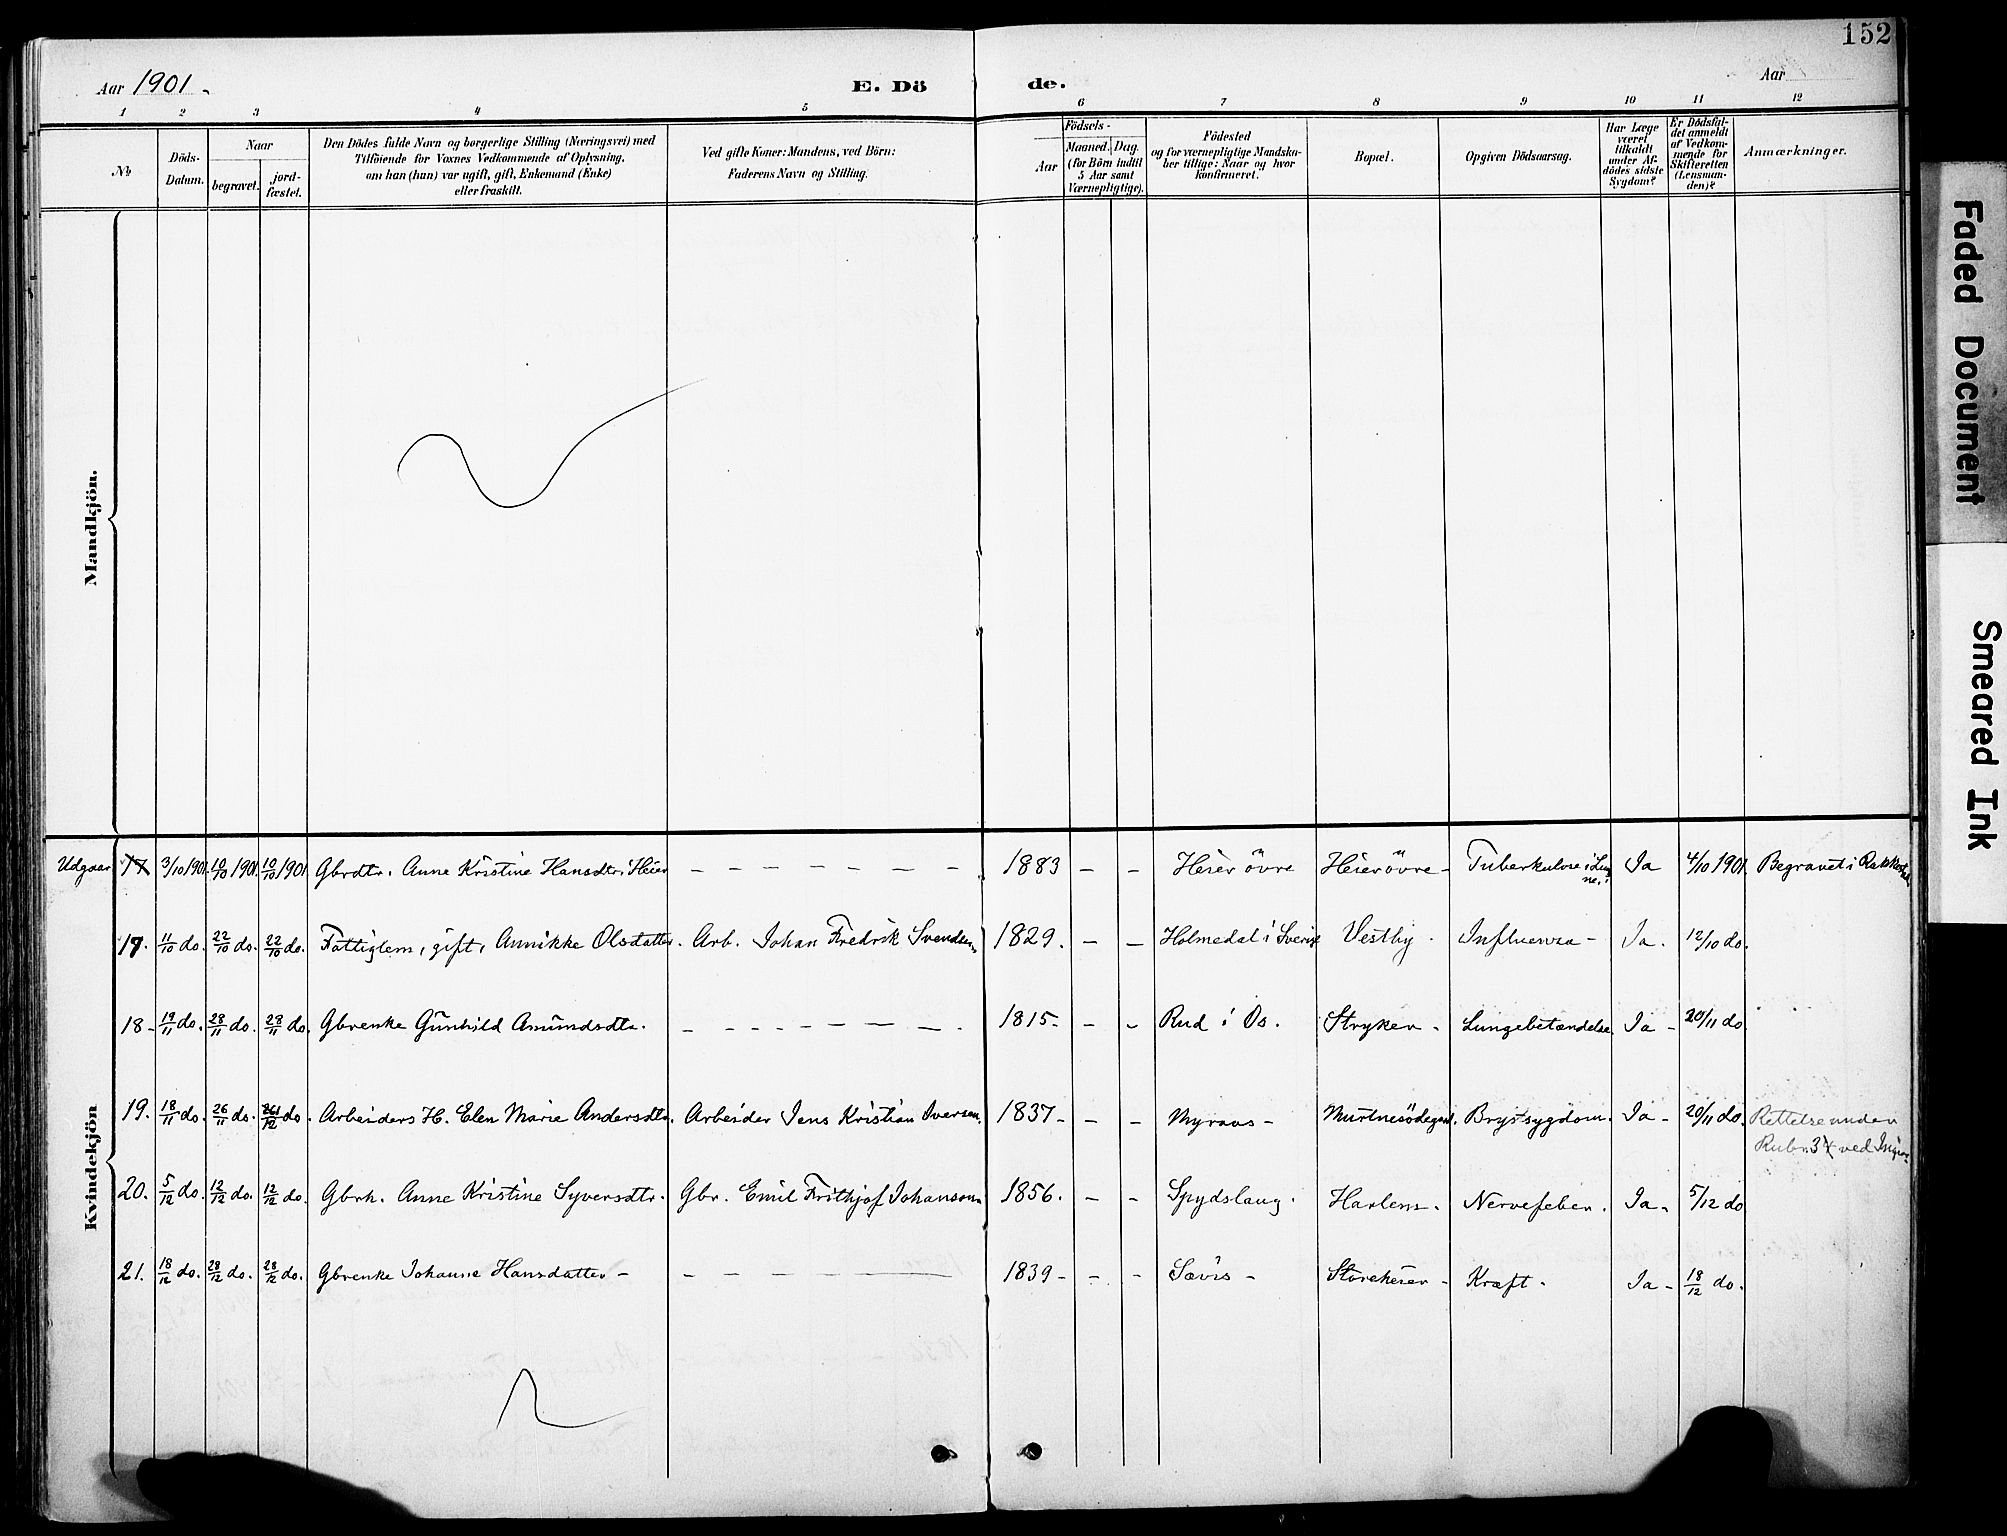 152
Aar 1901.
E. Döde.
Aar
1 2 3 4 5 6 7 8 9 10 11 12
No
Döds-Datum.
Naar
begravet.
jordfæstet.
Den Dödes fulde Navn og borgerlige Stilling (Næringsvei) med
Tilföiende for Voxnes Vedkommende af Oplysning,
om han (hun) var ugift, gift, Enkemand (Enke)
eller fraskilt.
Ved gifte Koner: Mandens, ved Börn:
Faderens Navn og Stilling.
Födsels-
Aar
Maaned. Dag.
(for Börn indtil
5 Aar samt
Værnepligtige).
Födested
og for værnepligtige Mandska-
ber tillige: Naar og hvor
konfirmeret.
Bopæl.
Opgiven Dödsaarsag.
Har Læge
været
tilkaldt
under Af-
dödes sidste
Sygdom?
Er Dödsfal-
det anmeldt
af Vedkom-
mende for
Skifteretten
(Lensman-
den)?
Anmærkninger.
Mandkjön.
Kvindekjön
Udgaar 17 3/10 1901. 10/10 1901. 10/10 1901 Gbrdtr. Anne Kristine Hansdtr. Heier – – – – – – – 1883 – – Heier övre Heier övre – Tuberkulose i Ja 4/10 1901. Begravet i Rakkestad
17. 11/10 do. 22/10 do. 22/10 do. Fattiglem, gift, Annikke Olsdatter. Arb. Johan Fredrik Svendsen 1829. – – Holmedal i Sverige Vestby. Influenza – Ja. 12/10 do.
18 – 19/11 do. 28/11 do. 28/11 do. Gbrenke Gunhild Amundsdtr. – – – – – – – – – 1815 – – – Rud i Os. Stryken – Lungebetændelse Ja – 20/11 do
19. 18/11 do. 26/11 do. do. Arbeiders H. Elen Marie Andersdtr. Arbeider Jens Kristian Iversen. 1837 – – – Myraas – Brystsygdom. Ja – 20/11 do. Rettelse under
Rubr. 3 ved
20. 5/12 do. 12/12 do. 12/12 do. Gbrh. Anne Kristine Syversdtr. Gbr. Emil Frithjof Johansen 1856. – – Spydslaug. Harlem. Nervefeber. Ja. 5/12 do
21. 18/12 do. 28/12 do. 28/12 do. Gbrenke Johanne Hansdatter – – – – – – 1839 – – – Sævis – Storeheier – Kræft – Ja – 18/12 do.
Faded Document
Smeared Ink